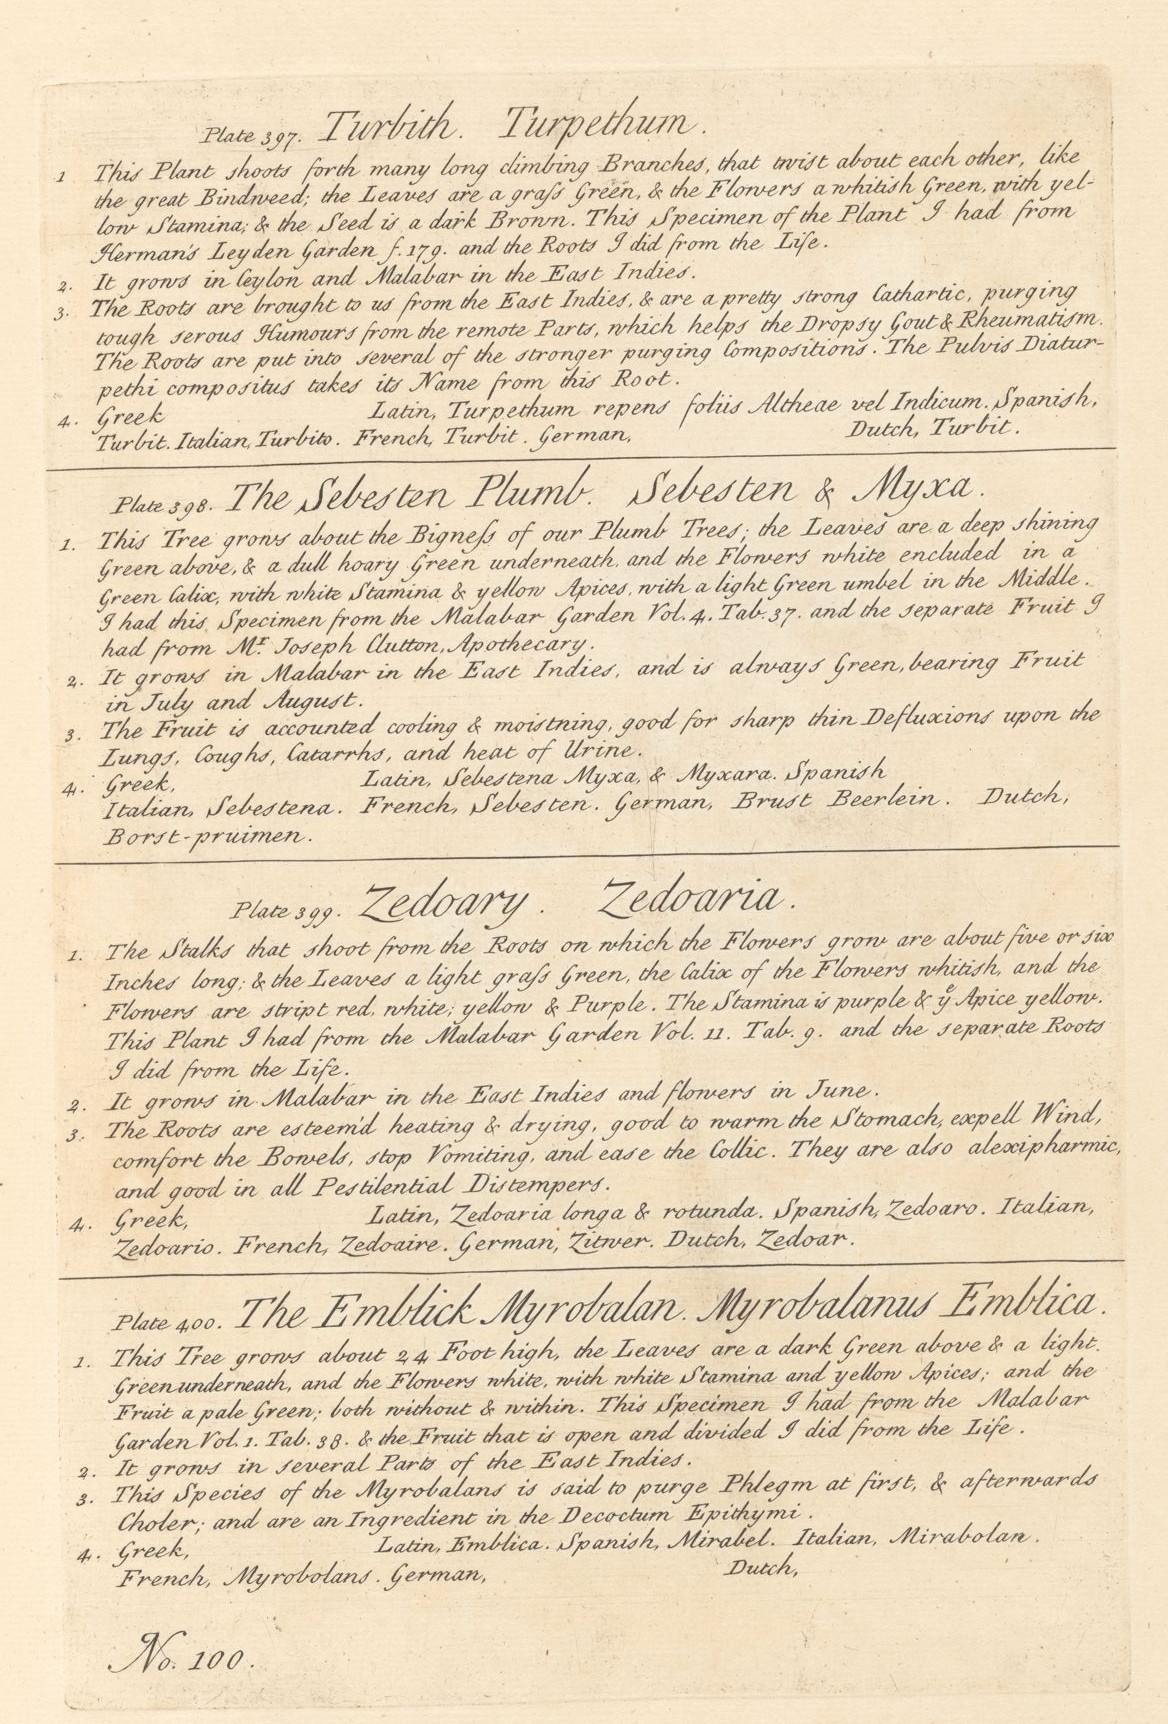 Plate 397. Turbith. Turpethum.
1 This Plant shoots forth many long climbing Branches, that twist about each other, like
the great Bindweed; the Leaves are a graſs Green, & the Flowers a whitish Green, with yel-
low Stamina; & the Seed is a dark Brown. This Specimen of the Plant I had from
Herman's Leyden Garden f. 179. and the Roots I did from the Life.
2. It grows in Ceylon and Malabar in the East Indies.
3. The Roots are brought to us from the East Indies, & are a pretty strong Cathartic, purging
tough serous Humours from the remote Parts, which helps the Dropsy Gout & Rheumatism.
The Roots are put into several of the stronger purging Compositions. The Pulvis Diatur-
pethi compositus takes its Name from this Root.
4. Greek Latin, Turpethum repens foliis Altheae vel Indicum. Spanish,
Turbit. Italian, Turbito. French, Turbit. German, Dutch, Turbit.
Plate 398. The Sebesten Plumb. Sebesten & Myxa.
1. This Tree grows about the Bigneſs of our Plumb Trees; the Leaves are a deep shining
Green above, & a dull hoary Green underneath, and the Flowers white encluded in a
Green Calix, with white Stamina & yellow Apices, with a light Green umbel in the Middle.
I had this Specimen from the Malabar Garden Vol. 4. Tab. 37. and the separate Fruit I
had from Mr. Joseph Clutton, Apothecary.
2. It grows in Malabar in the East Indies, and is always Green, bearing Fruit
in July and August.
3. The Fruit is accounted cooling & moistning, good for sharp thin Defluxions upon the
Lungs, Coughs, Catarrhs, and heat of Urine.
4. Greek, Latin, Sebestena Myxa, & Myxara. Spanish
Italian, Sebestena. French, Sebesten. German, Brust Beerlein. Dutch,
Borst-pruimen.
Plate 399. Zedoary. Zedoaria.
1. The Stalks that shoot from the Roots on which the Flowers grow are about five or six
Inches long; & the Leaves a light graſs Green, the Calix of the Flowers whitish, and the
Flowers are stript red, white; yellow & Purple. The Stamina is purple & ye Apice yellow.
This Plant I had from the Malabar Garden Vol. 11. Tab. 9. and the separate Roots
I did from the Life.
2. It grows in Malabar in the East Indies and flowers in June.
3. The Roots are esteem'd heating & drying, good to warm the Stomach, expell Wind,
comfort the Bowels, stop Vomiting, and ease the Collic. They are also alexipharmic,
and good in all Pestilential Distempers.
4. Greek, Latin, Zedoaria longa & rotunda. Spanish, Zedoaro. Italian,
Zedoario. French, Zedoaire. German, Zitwer. Dutch, Zedoar.
Plate 400. The Emblick Myrobalan. Myrobalanus Emblica.
1. This Tree grows about 24 Foot high, the Leaves are a dark Green above & a light
Green underneath, and the Flowers white, with white Stamina and yellow Apices; and the
Fruit a pale Green; both without & within. This Specimen I had from the Malabar
Garden Vol. 1. Tab. 38. & the Fruit that is open and divided I did from the Life.
2. It grows in several Parts of the East Indies.
3. This Species of the Myrobalans is said to purge Phlegm at first, & afterwards
Choler; and are an Ingredient in the Decoctum Epithymi.
4. Greek, Latin, Emblica. Spanish, Mirabel. Italian, Mirabolan.
French, Myrobolans. German, Dutch,
No. 100.